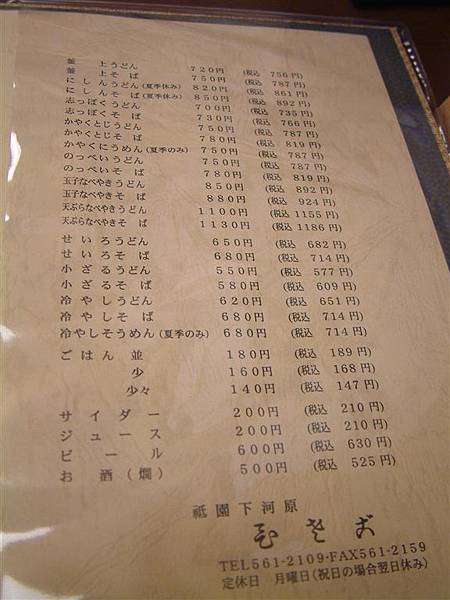 釜上うどん 720円 (税込 756円)
釜上そば 750円 (税込 787円)
にしんうどん(夏季休み) 820円 (税込 861円)
にしんそば(夏季休み) 850円 (税込 892円)
志っぽくうどん 700円 (税込 735円)
志っぽくそば 730円 (税込 766円)
かやくとじうどん 750円 (税込 787円)
かやくとじそば 780円 (税込 819円)
かやくにうめん(夏季のみ) 750円 (税込 787円)
のっぺいうどん 750円 (税込 787円)
のっぺいそば 780円 (税込 819円)
玉子なべやきうどん 850円 (税込 892円)
玉子なべやきそば 880円 (税込 924円)
天ぷらなべやきうどん 1100円 (税込 1155円)
天ぷらなべやきそば 1130円 (税込 1186円)
せいろうどん 650円 (税込 682円)
せいろそば 680円 (税込 714円)
小ざるうどん 550円 (税込 577円)
小ざるそば 580円 (税込 609円)
冷やしうどん 620円 (税込 651円)
冷やしそば 680円 (税込 714円)
冷やしそうめん(夏季のみ) 680円 (税込 714円)
ごはん 並 180円 (税込 189円)
少 160円 (税込 168円)
少々 140円 (税込 147円)
サイダー 200円 (税込 210円)
ジュース 200円 (税込 210円)
ビール 600円 (税込 630円)
お酒(燗) 500円 (税込 525円)
祗園下河原
TEL561-2109・FAX561-2159
定休日 月曜日(祝日の場合翌日休み)